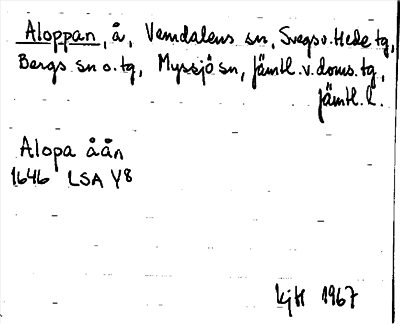 Aloppan, å, Vemdalens sn, Svegs o. Hede tg,
Bergs sn o. tg, Myssjö sn, Jämtl. v. doms. tg,
Jämtl. l.
Alopa åån
1646 LSA Y8
KjH 1967